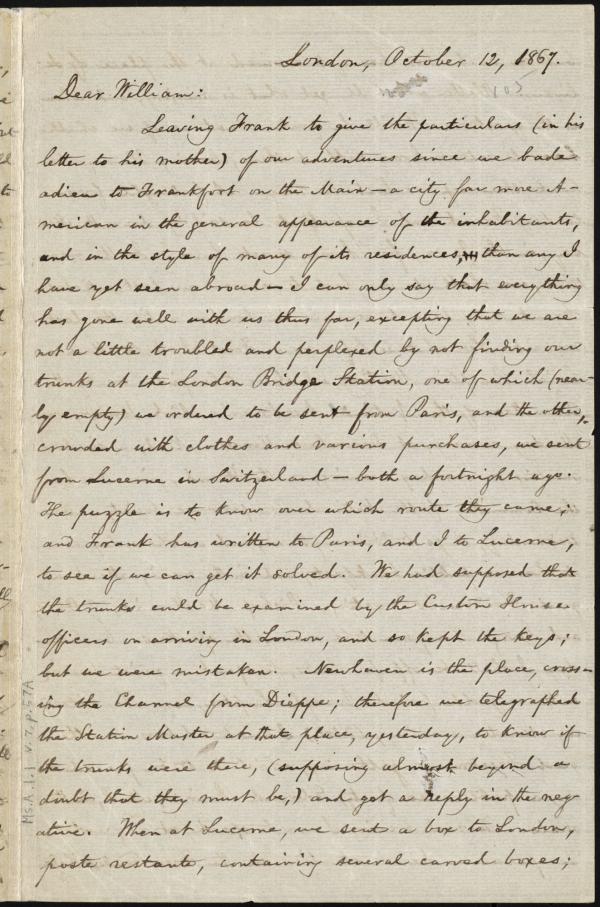 London, October 12, 1867.
Dear William:
Leaving Frank to give the particulars (in his
letter to his mother) of our adventures since we bade
adieu to Frankfort on the Main — a city far more A-
merican in the general appearance of the inhabitants,
and in the style of many of its residences, than any I
have yet seen abroad — I can only say that everything
has gone well with us thus far, excepting that we are
not a little troubled and perplexed by not finding our
trunks at the London Bridge Station, one of which (near-
ly empty) we ordered to be sent from Paris, and the other,
crowded with clothes and various purchases, we sent
from Lucerne in Switzerland — both a fortnight ago.
The puzzle is to know over which route they came;
and Frank has written to Paris, and I to Lucerne,
to see if we can get it solved. We had supposed that
the trunks could be examined by the Custom House
officers on arriving in London, and so kept the keys;
but we were mistaken. Newhaven is the place, cross-
ing the Channel from Dieppe; therefore we telegraphed
the Station Master at that place, yesterday, to know if
the trunks were there, (supposing almost beyond a
doubt that they must be,) and got a reply in the neg-
ative. When at Lucerne, we sent a box to London,
poste restante, containing several carved boxes;
Ms.A.1.1 v.7, p.57A